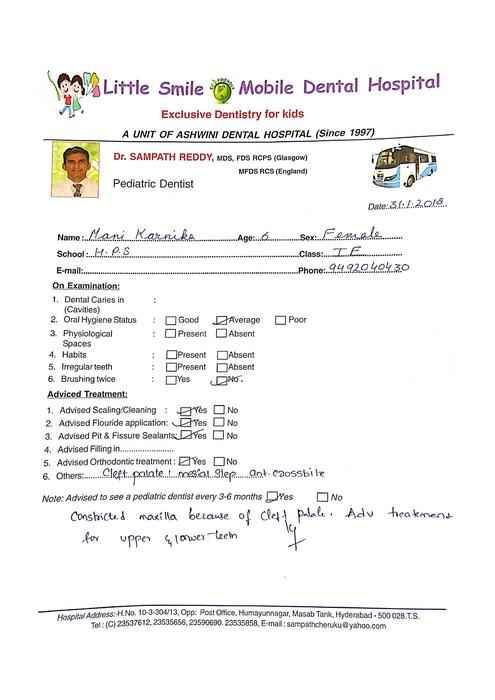 Little Smile Mobile Dental Hospital
Exclusive Dentistry for kids
A UNIT OF ASHWINI DENTAL HOSPITAL (Since 1997)
Dr. SAMPATH REDDY, MDS, FDS RCPS (Glasgow)
MFDS RCS (England)
Pediatric Dentist
Date: 31.1.2018
Name: Mani Karnika Age: 6 Sex: Female
School: H.P.S Class: I E
E-mail: Phone: 9492040430
On Examination:
1. Dental Caries in :
(Cavities)
2. Oral Hygiene Status : Good Average Poor
3. Physiological : Present Absent
Spaces
4. Habits : Present Absent
5. Irregular teeth : Present Absent
6. Brushing twice : Yes No.
Adviced Treatment:
1. Advised Scaling/Cleaning : Yes No
2. Advised Flouride application: Yes No
3. Advised Pit & Fissure Sealants: Yes No
4. Advised Filling in
5. Advised Orthodontic treatment : Yes No
6. Others: Cleft palate: mesial step ant. crossbite
Note: Advised to see a pediatric dentist every 3-6 months Yes No
Constricted maxilla because of cleft palate. Adv treatement
for upper & lower teeth
Hospital Address:-H.No. 10-3-304/13, Opp: Post Office, Humayunnagar, Masab Tank, Hyderabad - 500 028.T.S.
Tel : (C) 23537612, 23535656, 23590690. 23535858, E-mail : sampathcheruku@yahoo.com